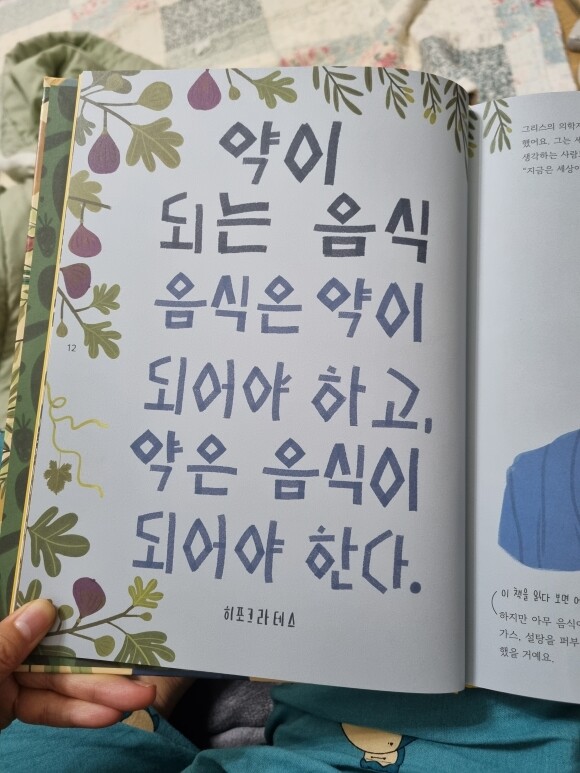 약이
되는 음식
음식은 약이
되어야 하고,
약은 음식이
되어야 한다.
히포크라테스
12
그리스의 의학
했어요. 그는
생각하는 사람
"지금은 세상
이 책을 읽다 보면
하지만 아무 음식
가스, 설탕을 퍼부
했을 거예요.